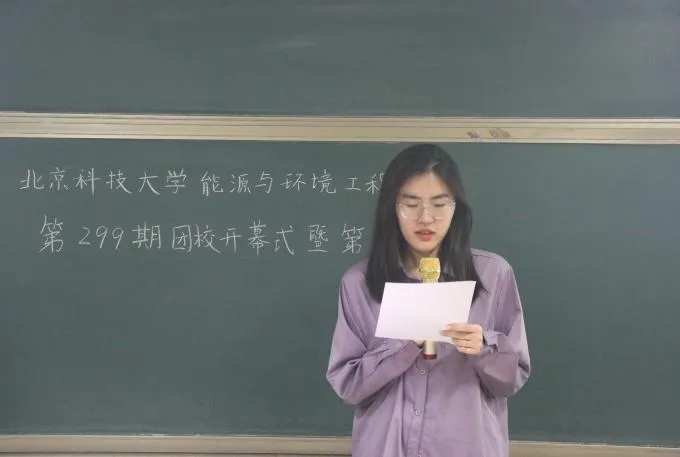 北京科技大学 能源与环境工程
第 299 期团校开幕式 暨 第